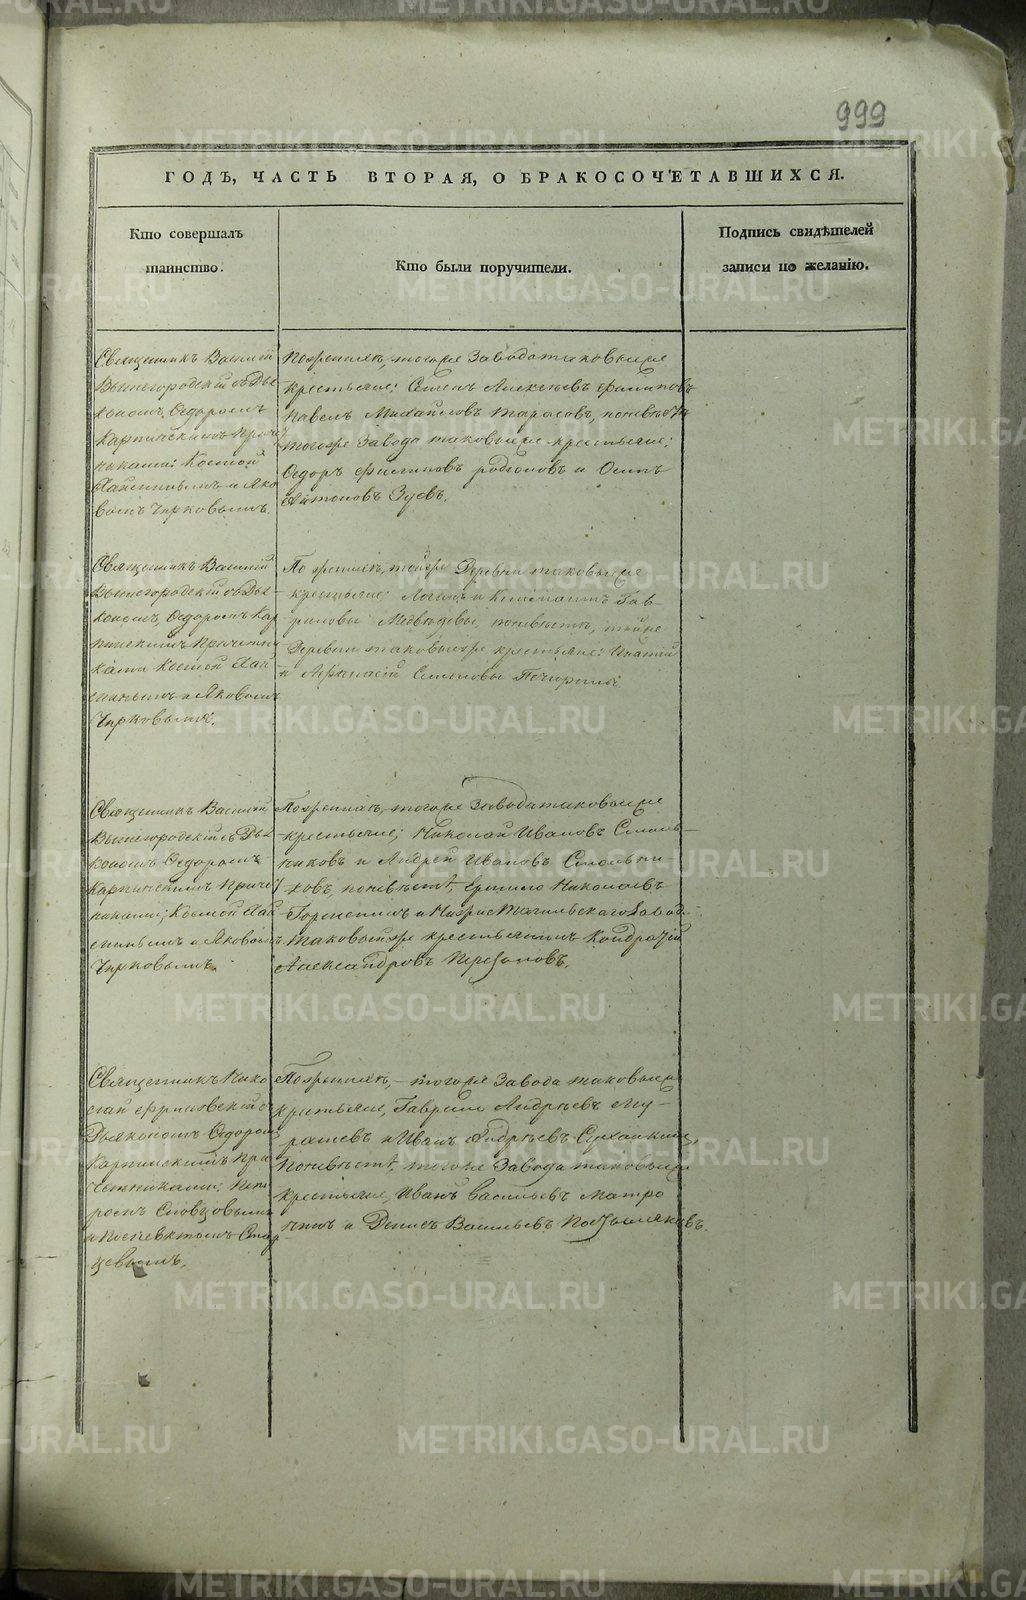 999
ГОДЪ, ЧАСТЬ ВТОРАЯ, О БРАКОСОЧЕТАВШИХСЯ.
Кто совершалъ
таинство.
Кто были поручители.
Подпись свидѣтелей
записи по желанію.
Священникъ Василій
Вышегородскій съ Дья-
кономъ, Ѳедоромъ
Карпинскимъ Приче[т]
никами: Космой
и Яко
вомъ Чирковымъ.
По женихѣ, тогоже Завода таковыеже
крестьяне: Алексѣевъ Филиповъ
Павелъ Михайловъ Тарасовъ, по невѣстѣ
тогоже Завода таковыеже крестьяне:
Ѳедоръ Филиповъ Родіоновъ и Осипъ
Антоновъ Зуевъ.
Священникъ Василій
Вышегородскій съ Дья-
кономъ, Ѳедоромъ Кар
пинскимъ Причетни
ками Космой
и Яковомъ
Чирковымъ.
По женихѣ, тойже Деревни таковыеже
крестьяне: Логинъ и Гав-
риловы Медвѣдевы, по невѣстѣ, тойже
Деревни таковыеже крестьяне: Ипатій
и Афанасій Семеновы
Священникъ Василій
Вышегородскій съ Дья-
кономъ Ѳедоромъ
Карпинскимъ Приче[т]
никами; Космой
и Яковомъ
Чирковымъ.
По женихѣ, тогоже Завода таковыеже
крестьяне; Николай Ивановъ
и Андрей Ивановъ
по невѣстѣ, Ермило Николаевъ
и Нижне Тагильскаго Завода
таковыйже крестьянинъ Кондратій
Александровъ
Священникъ Нико
лай съ
Дьякономъ Ѳедоромъ
Карпинскимъ При
четниками: Пет
ромъ Словцовымъ
и
По женихѣ, тогоже Завода таковыеже
крестьяне, Гаврило Андрѣевъ
и Иванъ Андрѣевъ
По невѣстѣ, тогоже Завода таковыеже
крестьяне, Иванъ Васильевъ Матро
и Денисъ Васильевъ
METRIKI.GASO-URAL.RU